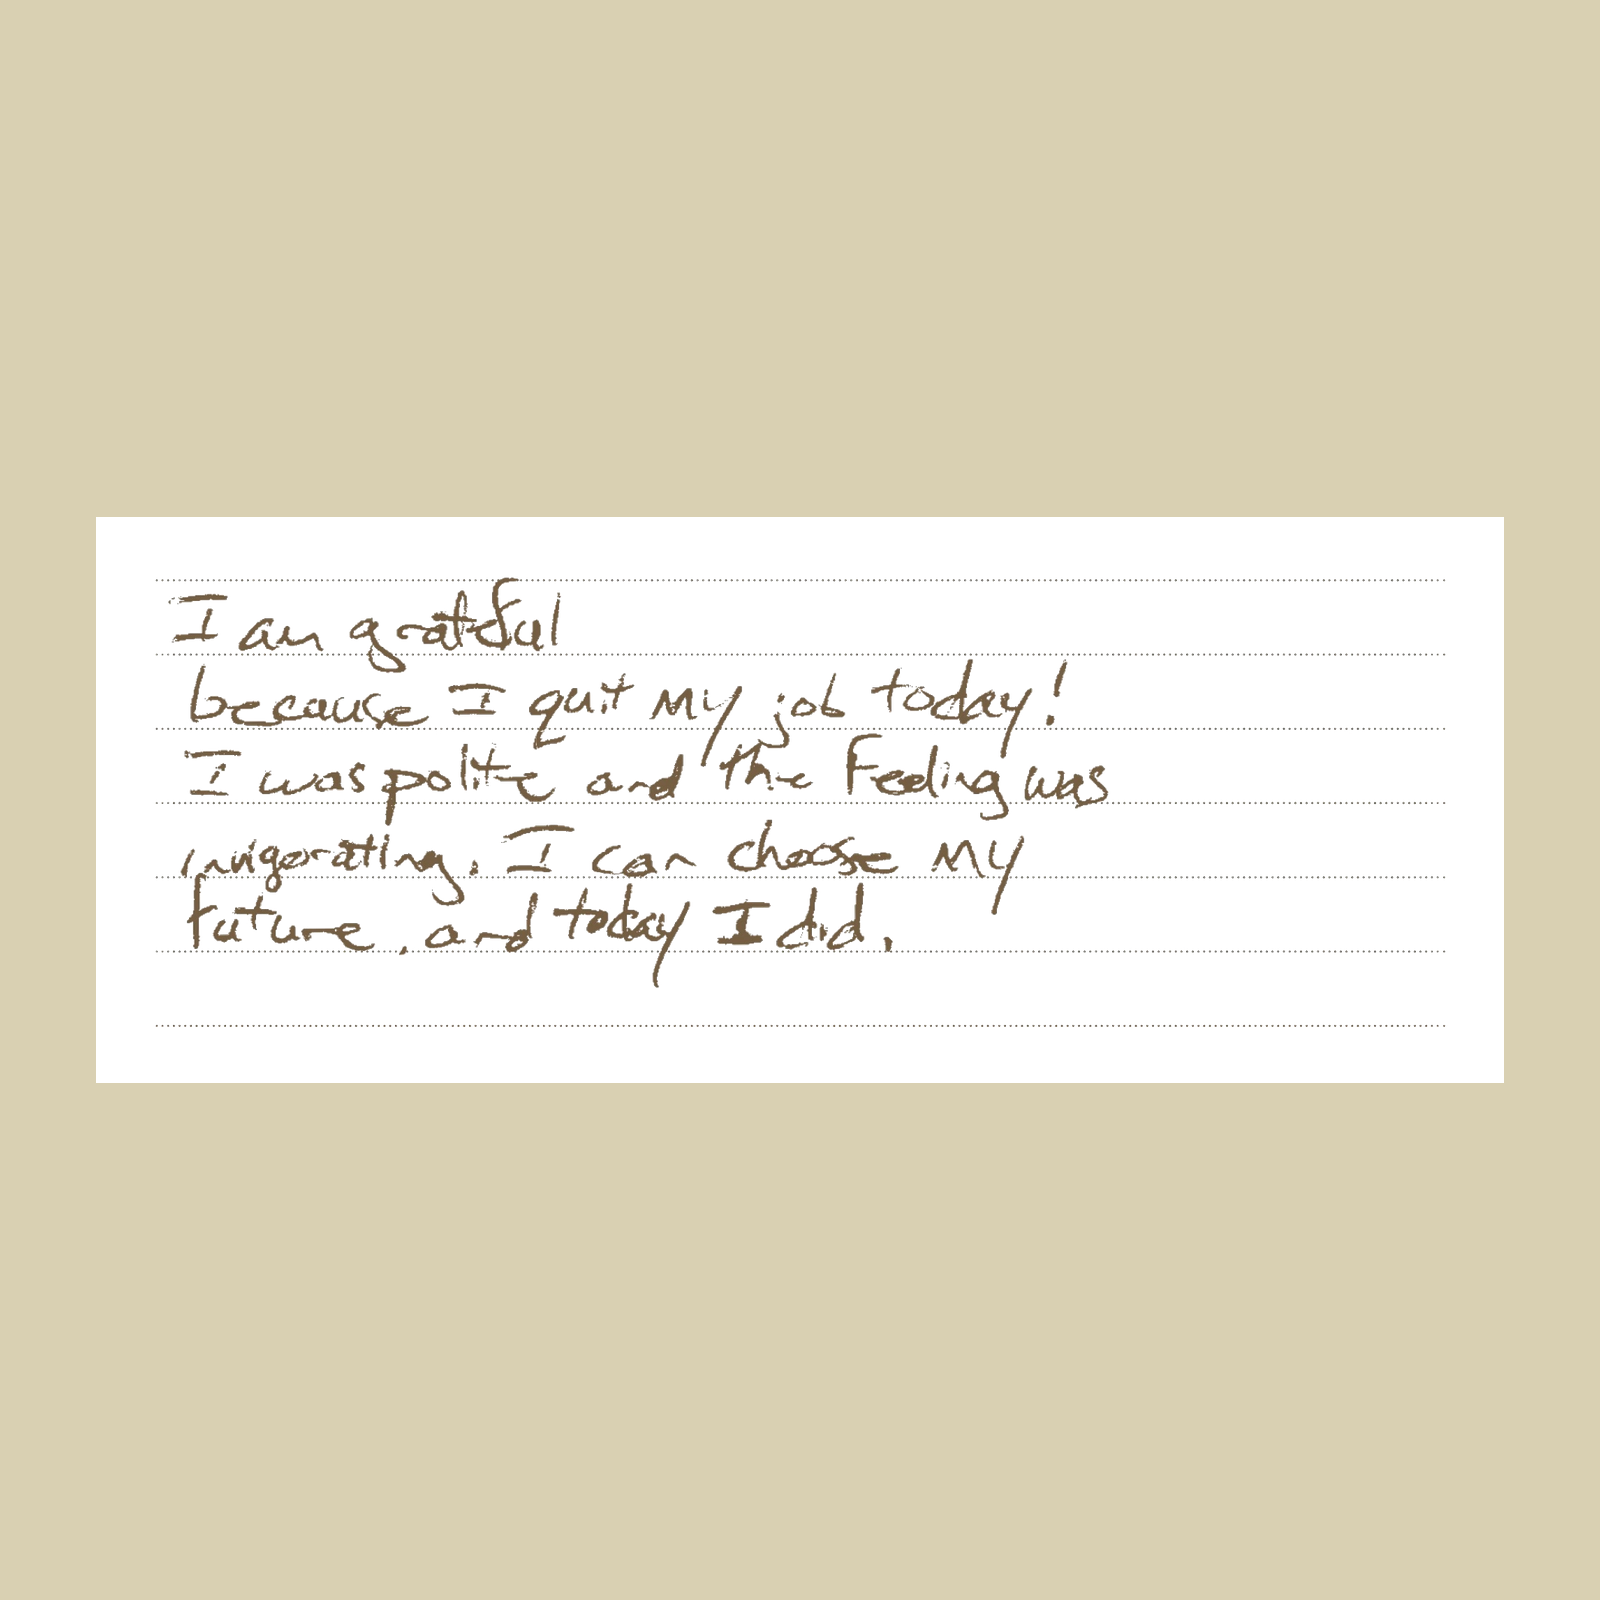 I am grateful
because I quit my job today!
I was polite and the feeling was
invigorating. I can choose my
future, and today I did.